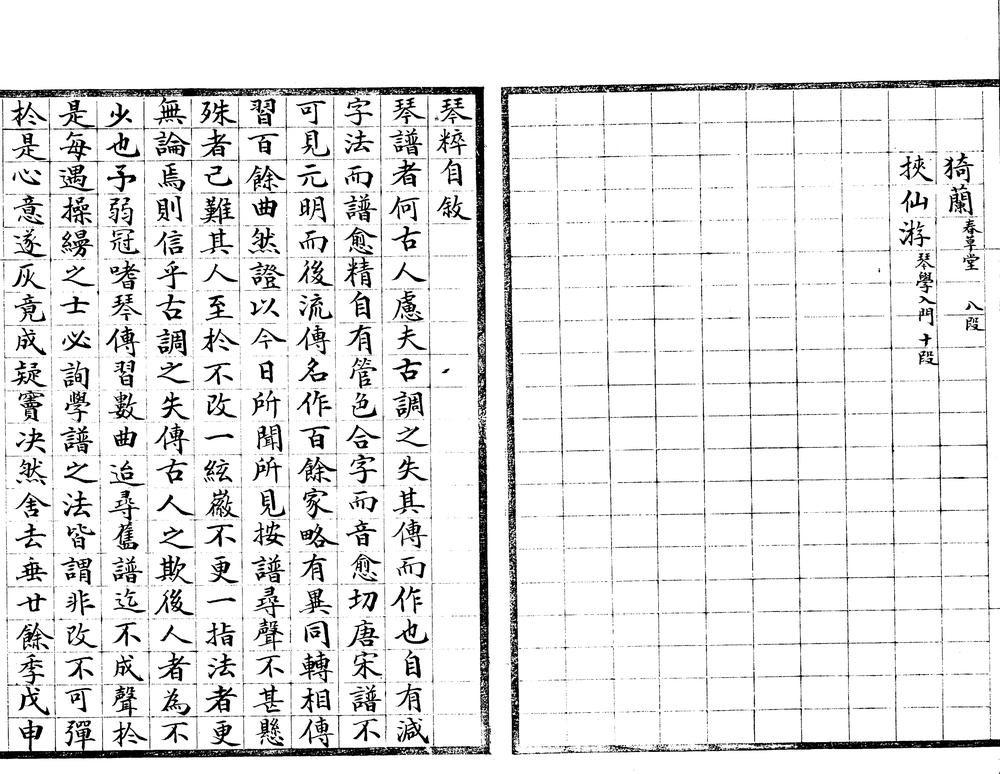 猗蘭春草堂 八段
挾仙游琴學入門 十段
琴粹自敘
琴譜者何古人慮夫古調之失其傳而作也自有減
字法而譜愈精自有管色合字而音愈切唐宋譜不
可見元明而後流傳名作百餘家略有異同轉相傳
習百餘曲然證以今日所聞所見按譜尋聲不甚懸
殊者已難其人至於不改一絃徽不更一指法者更
無論焉則信乎古調之失傳古人之欺後人者為不
少也予弱冠嗜琴傳習數曲迨尋舊譜迄不成聲於
是每遇操縵之士必詢學譜之法皆謂非改不可彈
於是心意遂灰竟成疑竇决然舍去垂廿餘季戊申